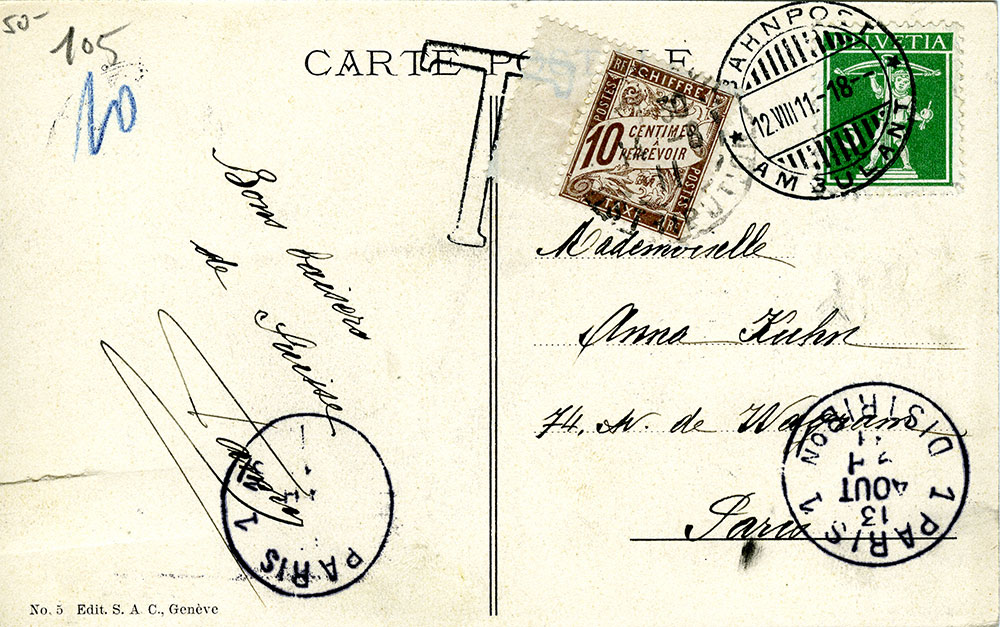 50-
105
10
CARTE PO
T
RF CHIFFRE
POSTES
10 CENTIMES
À
PERCEVOIR
POSTES
TAXE
HELVETIA
BAHNPOST
12.VIII.11.-18--
AMBULANT
Bons baisers
de Suisse
Mademoiselle
Anna Kuhn
74, Av. de Wagram
Paris
PARIS 1
1 PARIS 1
13
AOUT
11
NON
DISTRIB
No. 5 Edit. S. A. C., Genève